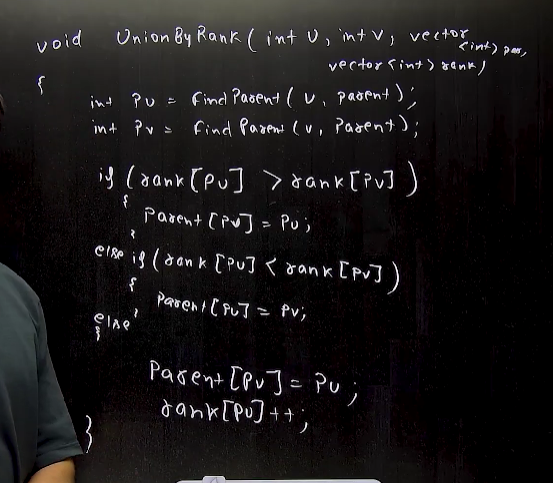 void UnionByRank ( int U, int V, vector<int> par,
vector<int> rank)
{
int Pu = findParent ( U, parent );
int Pv = findParent ( v, Parent );
if ( rank[Pu] > rank[Pv] )
{
Parent [Pv] = Pu;
}
else if ( rank [Pu] < rank [Pv] )
{
Parent [Pu] = Pv;
}
else
{
Parent [Pv] = Pu ;
rank[Pu] ++;
}